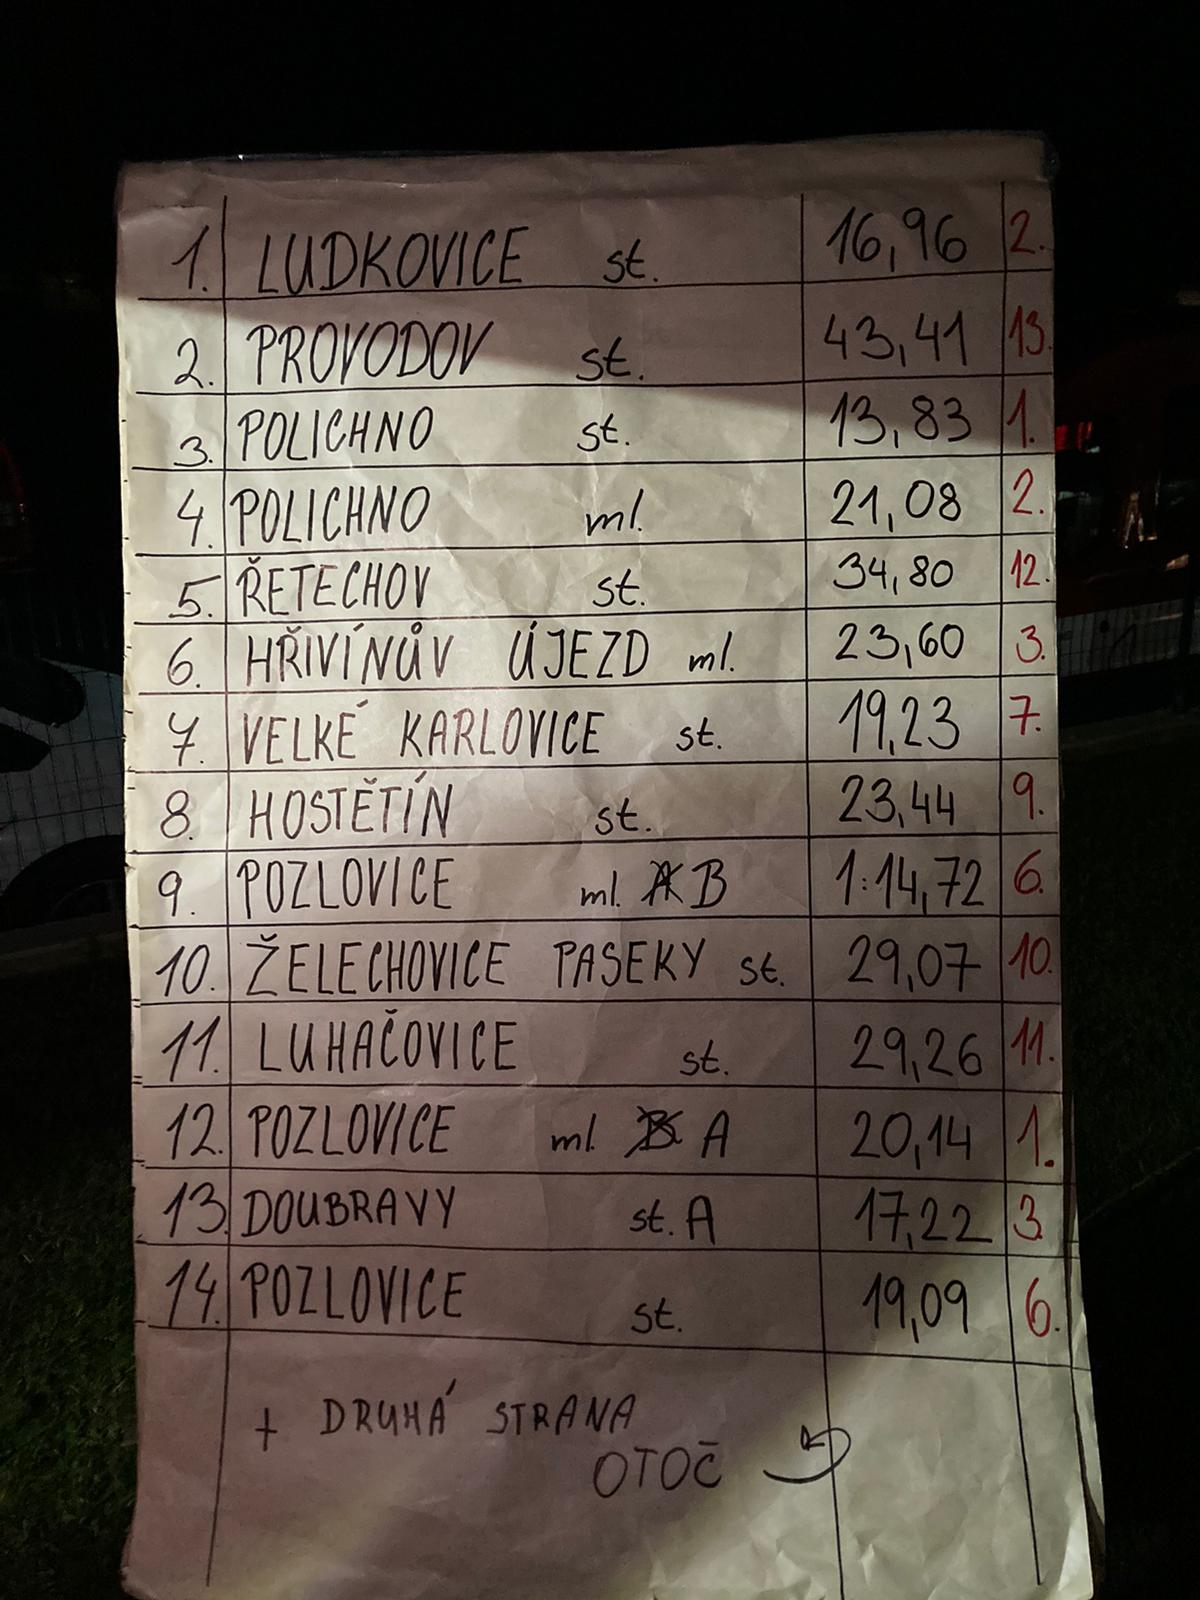 1. LUDKOVICE st. 16,96 2.
2. PROVODOV st. 43,41 13.
3. POLICHNO st. 13,83 1.
4. POLICHNO ml. 21,08 2.
5. ŘETECHOV st. 34,80 12.
6. HŘIVÍNŮV ÚJEZD ml. 23,60 3.
7. VELKÉ KARLOVICE st. 19,23 7.
8. HOSTĚTÍN st. 23,44 9.
9. POZLOVICE ml. A B 1:14,72 6.
10. ŽELECHOVICE PASEKY st. 29,07 10.
11. LUHAČOVICE st. 29,26 11.
12. POZLOVICE ml. B A 20,14 1.
13. DOUBRAVY st. A 17,22 3.
14. POZLOVICE st. 19,09 6.
+ DRUHÁ STRANA
OTOČ